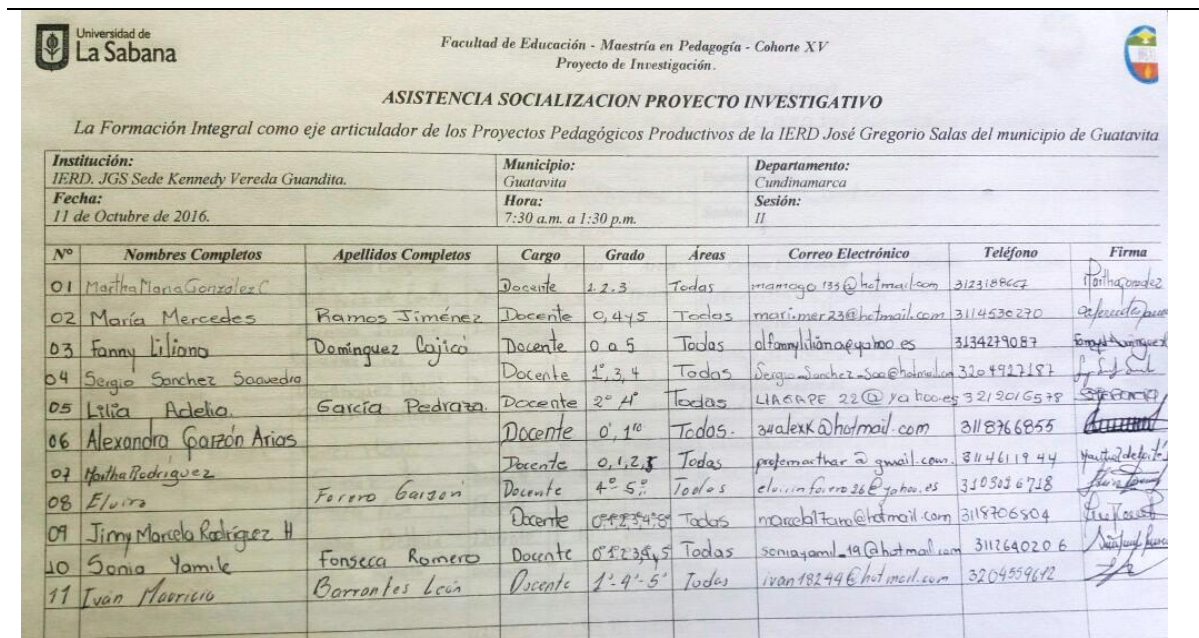 Universidad de
La Sabana
Facultad de Educación - Maestría en Pedagogía - Cohorte XV
Proyecto de Investigación.
ASISTENCIA SOCIALIZACION PROYECTO INVESTIGATIVO
La Formación Integral como eje articulador de los Proyectos Pedagógicos Productivos de la IERD José Gregorio Salas del municipio de Guatavita
Institución: Municipio: Departamento:
IERD. JGS Sede Kennedy Vereda Guandita. Guatavita Cundinamarca
Fecha: Hora: Sesión:
11 de Octubre de 2016. 7:30 a.m. a 1:30 p.m. II
Nº Nombres Completos Apellidos Completos Cargo Grado Áreas Correo Electrónico Teléfono Firma
01 Martha Maria González C Docente 1.2.3 Todas
02 María Mercedes Ramos Jiménez Docente 0,4y5 Todas mari.mer23@hotmail.com 3114530270
03 Fanny Liliana Domínguez Cajicá Docente 0 a 5 Todas 3134279087
04 Sergio Sanchez Saavedra Docente 1°, 3, 4 Todas 3204927187
05 Lilia Adelia. García Pedraza. Docente 2° 4° Todas LIAGAPE 22@yahoo.es 3212016578
06 Alexandra Garzón Arias Docente 0°, 1ro Todas. 34alexK@hotmail.com 3118766855
07 Martha Rodríguez Docente Todas profemarthar@gmail.com. 3114611944
08 Elvira Forero Garzon Docente 4° 5° Todas 3103026718
09 Jinny Marcela Rodríguez H Docente Todas 3118706804
10 Sonia Yamile Fonseca Romero Docente Todas soniayamil_19@hotmail.com 3112640206
11 Iván Mauricio Barrantes León Docente 1°-4°-5° Todas ivan18244@hotmail.com